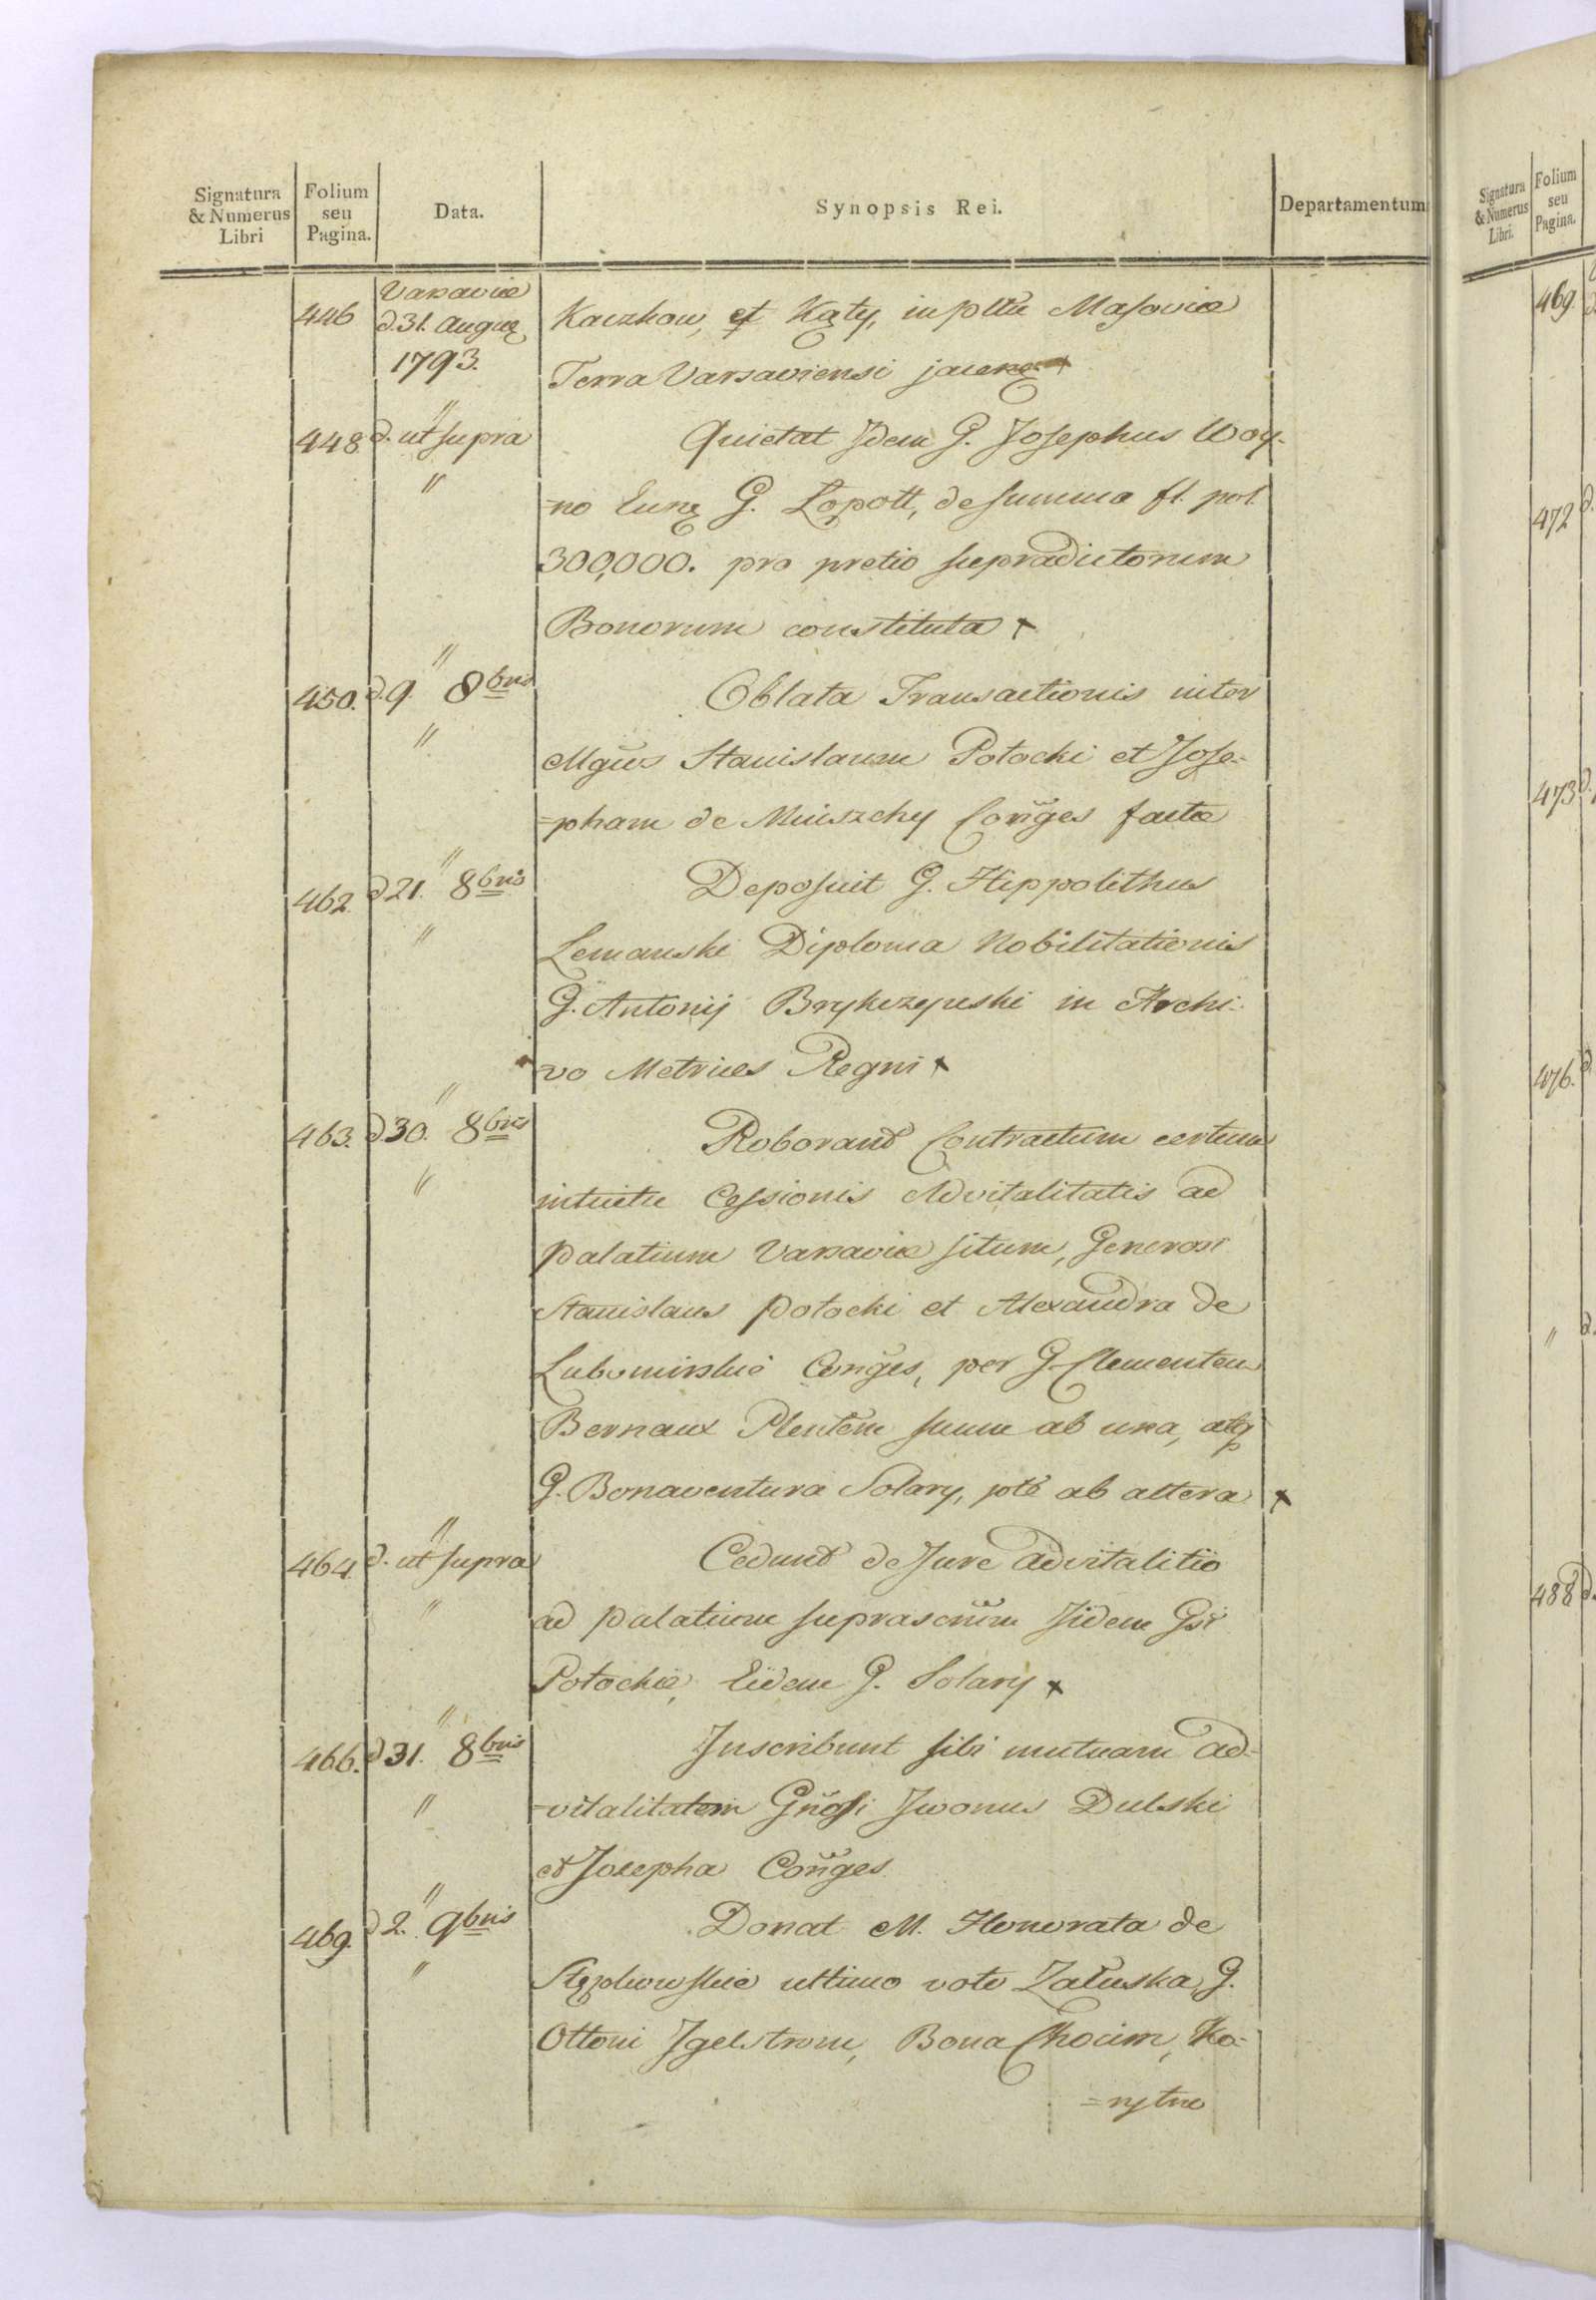 Signatura & Numerus Libri
Folium seu Pagina.
Data.
Synopsis Rei.
Departamentum
446 Varsaviæ d. 31. Augus 1793.
Kaczkow, et Kąty, in pltu Masoviæ
Terra Varsaviensi jacen x
448. " d. ut supra "
Quietat Idem G. Josephus Woy-
=no Eun G. Łopott, de summa fl. pol.
300,000. pro pretio supradictorum
Bonorum constituta x
450. " d. 9. 8bris "
Oblata Transactionis inter
Mgũos Stanislaum Potocki et Jose-
=pham de Mniszchy Conğes factæ
462. " d. 21. 8bris "
Deposuit G. Hippolithus
Lemanski Diploma Nobilitationis
G. Antonij Brykczynski in Archi-
vo Metrices Regni x
463. " d. 30. 8bris "
Roborant Contractum certum
intuitu Cessionis Advitalitatis ad
Palatium Varsaviæ situm, Generosi
Stanislaus Potocki et Alexandra de
Lubomirskie Conğes, per G. Clementem
Bernaux Plentem suum ab una, atq
G. Bonaventura Solary, pte ab altera x
464. " d. ut supra "
Cedunt de Jure advitalitio
ad palatium suprascrũm Jidem Gsi
Potockie, Eidem G. Solary x
466. " d. 31. 8bris "
Inscribunt sibi mutuam ad-
=vitalitatem Gñosi Iwonus Dulski
et Josepha Conğes
469. " d. 2. 9bris "
Donat M. Honorata de
Stępkowskie ultimo voto Załuska, G.
Ottoni Igelstrom, Bona Chocim, Ko-
=rytno
Signatura & Numerus Libri.
Folium seu Pagina.
469.
472
473
476.
"
488